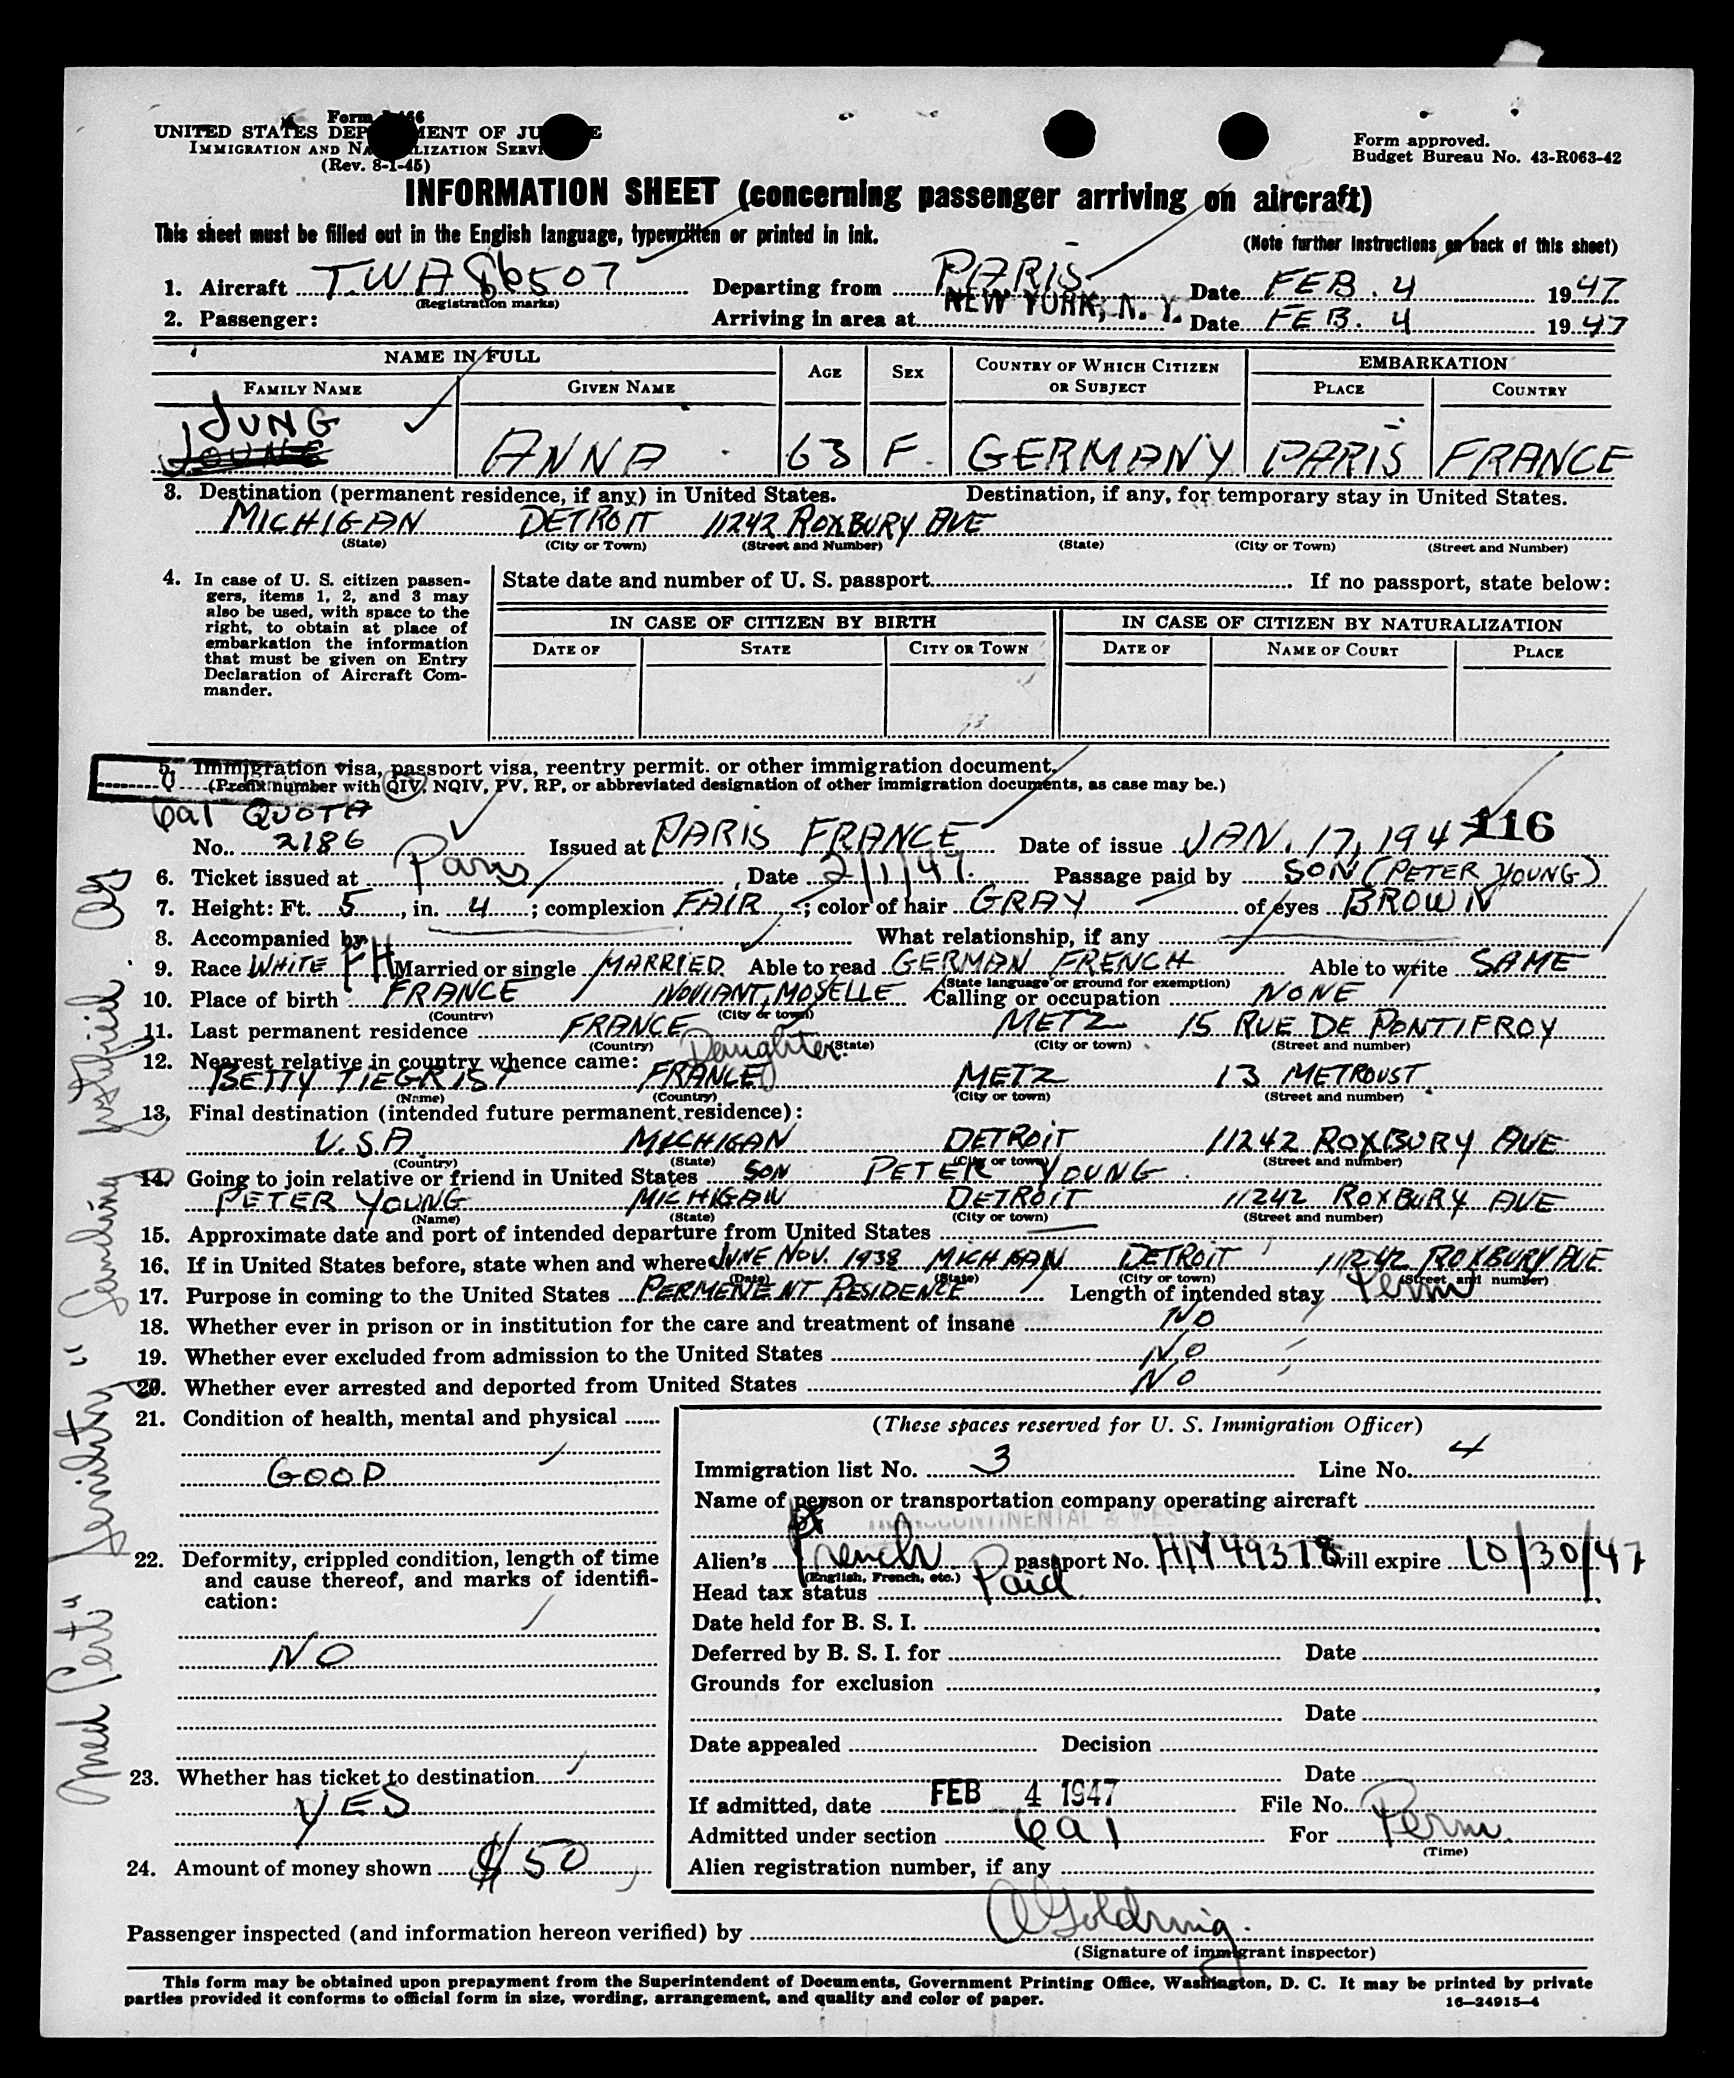 Form I-466
UNITED STATES DEPARTMENT OF JUSTICE
IMMIGRATION AND NATURALIZATION SERVICE
(Rev. 8-1-45)
Form approved.
Budget Bureau No. 43-R063-42
INFORMATION SHEET (concerning passenger arriving on aircraft)
This sheet must be filled out in the English language, typewritten or printed in ink.
(Note further instructions on back of this sheet)
1. Aircraft T.W.A 86507 Departing from PARIS Date FEB. 4 1947
(Registration marks)
2. Passenger: Arriving in area at NEW YORK, N. Y. Date FEB. 4 1947
NAME IN FULL AGE SEX COUNTRY OF WHICH CITIZEN OR SUBJECT EMBARKATION
FAMILY NAME GIVEN NAME PLACE COUNTRY
JUNG
YOUNG ANNA 63 F. GERMANY PARIS FRANCE
3. Destination (permanent residence, if any) in United States. Destination, if any, for temporary stay in United States.
MICHIGAN DETROIT 11242 ROXBURY AVE
(State) (City or Town) (Street and Number) (State) (City or Town) (Street and Number)
4. In case of U. S. citizen passen-
gers, items 1, 2, and 3 may
also be used, with space to the
right, to obtain at place of
embarkation the information
that must be given on Entry
Declaration of Aircraft Com-
mander.
State date and number of U. S. passport If no passport, state below:
IN CASE OF CITIZEN BY BIRTH IN CASE OF CITIZEN BY NATURALIZATION
DATE OF STATE CITY OR TOWN DATE OF NAME OF COURT PLACE
5. Immigration visa, passport visa, reentry permit. or other immigration document.
Q (Prefix number with QIV, NQIV, PV, RP, or abbreviated designation of other immigration documents, as case may be.)
6a1 QUOTA
No. 2186 Issued at PARIS FRANCE Date of issue JAN. 17, 1947 116
6. Ticket issued at Paris, Date 2/1/47. Passage paid by SON (PETER YOUNG)
7. Height: Ft. 5, in. 4; complexion FAIR; color of hair GRAY of eyes BROWN
8. Accompanied by What relationship, if any
9. Race WHITE FH Married or single MARRIED Able to read GERMAN FRENCH Able to write SAME
(State language or ground for exemption)
10. Place of birth FRANCE NOVIANT, MOSELLE Calling or occupation NONE
(Country) (City or town)
11. Last permanent residence FRANCE METZ 15 RUE DE PONTIFROY
(Country) (State) (City or town) (Street and number)
12. Nearest relative in country whence came: Daughter
BETTY TIEGRIST FRANCE METZ 13 METROUST.
(Name) (Country) (City or town) (Street and number)
13. Final destination (intended future permanent residence):
U.S.A MICHIGAN DETROIT 11242 ROXBURY AVE
(Country) (State) (City or town) (Street and number)
14. Going to join relative or friend in United States SON PETER YOUNG
PETER YOUNG MICHIGAN DETROIT 11242 ROXBURY AVE
(Name) (State) (City or town) (Street and number)
15. Approximate date and port of intended departure from United States
16. If in United States before, state when and where JUNE NOV. 1938 MICHIGAN DETROIT 11242 ROXBURY AVE
(Date) (State) (City or town) (Street and number)
17. Purpose in coming to the United States PERMENENT RESIDENCE Length of intended stay Perm
18. Whether ever in prison or in institution for the care and treatment of insane NO
19. Whether ever excluded from admission to the United States NO
20. Whether ever arrested and deported from United States NO
21. Condition of health, mental and physical
GOOD
22. Deformity, crippled condition, length of time
and cause thereof, and marks of identifi-
cation:
NO
23. Whether has ticket to destination
YES
24. Amount of money shown $50
(These spaces reserved for U. S. Immigration Officer)
Immigration list No. 3 Line No. 4
Name of person or transportation company operating aircraft
TRANSCONTINENTAL & WESTERN
Alien's French passport No. HM 49378 will expire 10/30/47
(English, French, etc.)
Head tax status Paid
Date held for B. S. I.
Deferred by B. S. I. for Date
Grounds for exclusion
Date
Date appealed Decision
Date
If admitted, date FEB 4 1947 File No.
Admitted under section 6a1 For Perm.
(Time)
Alien registration number, if any
Passenger inspected (and information hereon verified) by A Goldring.
(Signature of immigrant inspector)
This form may be obtained upon prepayment from the Superintendent of Documents, Government Printing Office, Washington, D. C. It may be printed by private
parties provided it conforms to official form in size, wording, arrangement, and quality and color of paper.
16—24915-4
Med Cert: "Senility" Landing justified